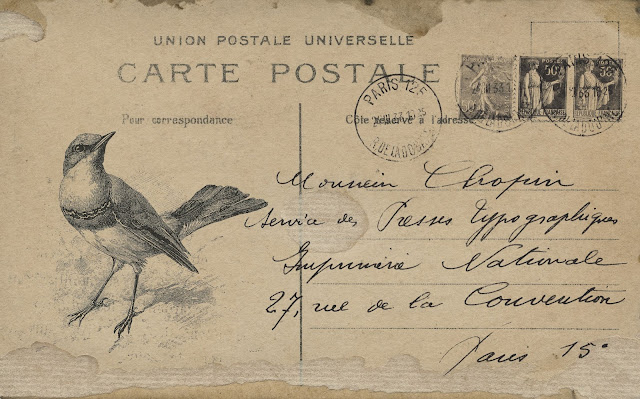 UNION POSTALE UNIVERSELLE
CARTE POSTALE
PARIS 125
Pour correspondance
Côté réservé à l'adresse
Monsieur Chopin
Service des Presses Typographiques
Imprimerie Nationale
27, rue de la Convention
Paris 15e